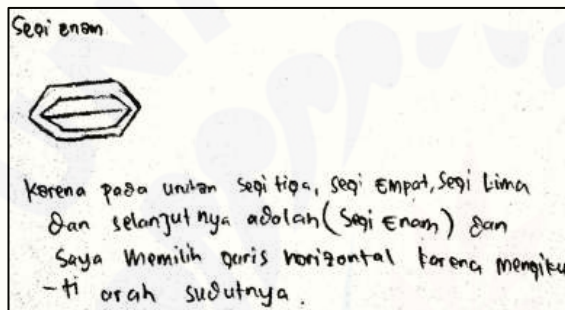 Segi enam
Karena pada urutan segi tiga, segi Empat, Segi Lima
dan selanjutnya adalah (Segi Enam) dan
saya memilih garis horizontal karena mengiku
-ti arah sudutnya.